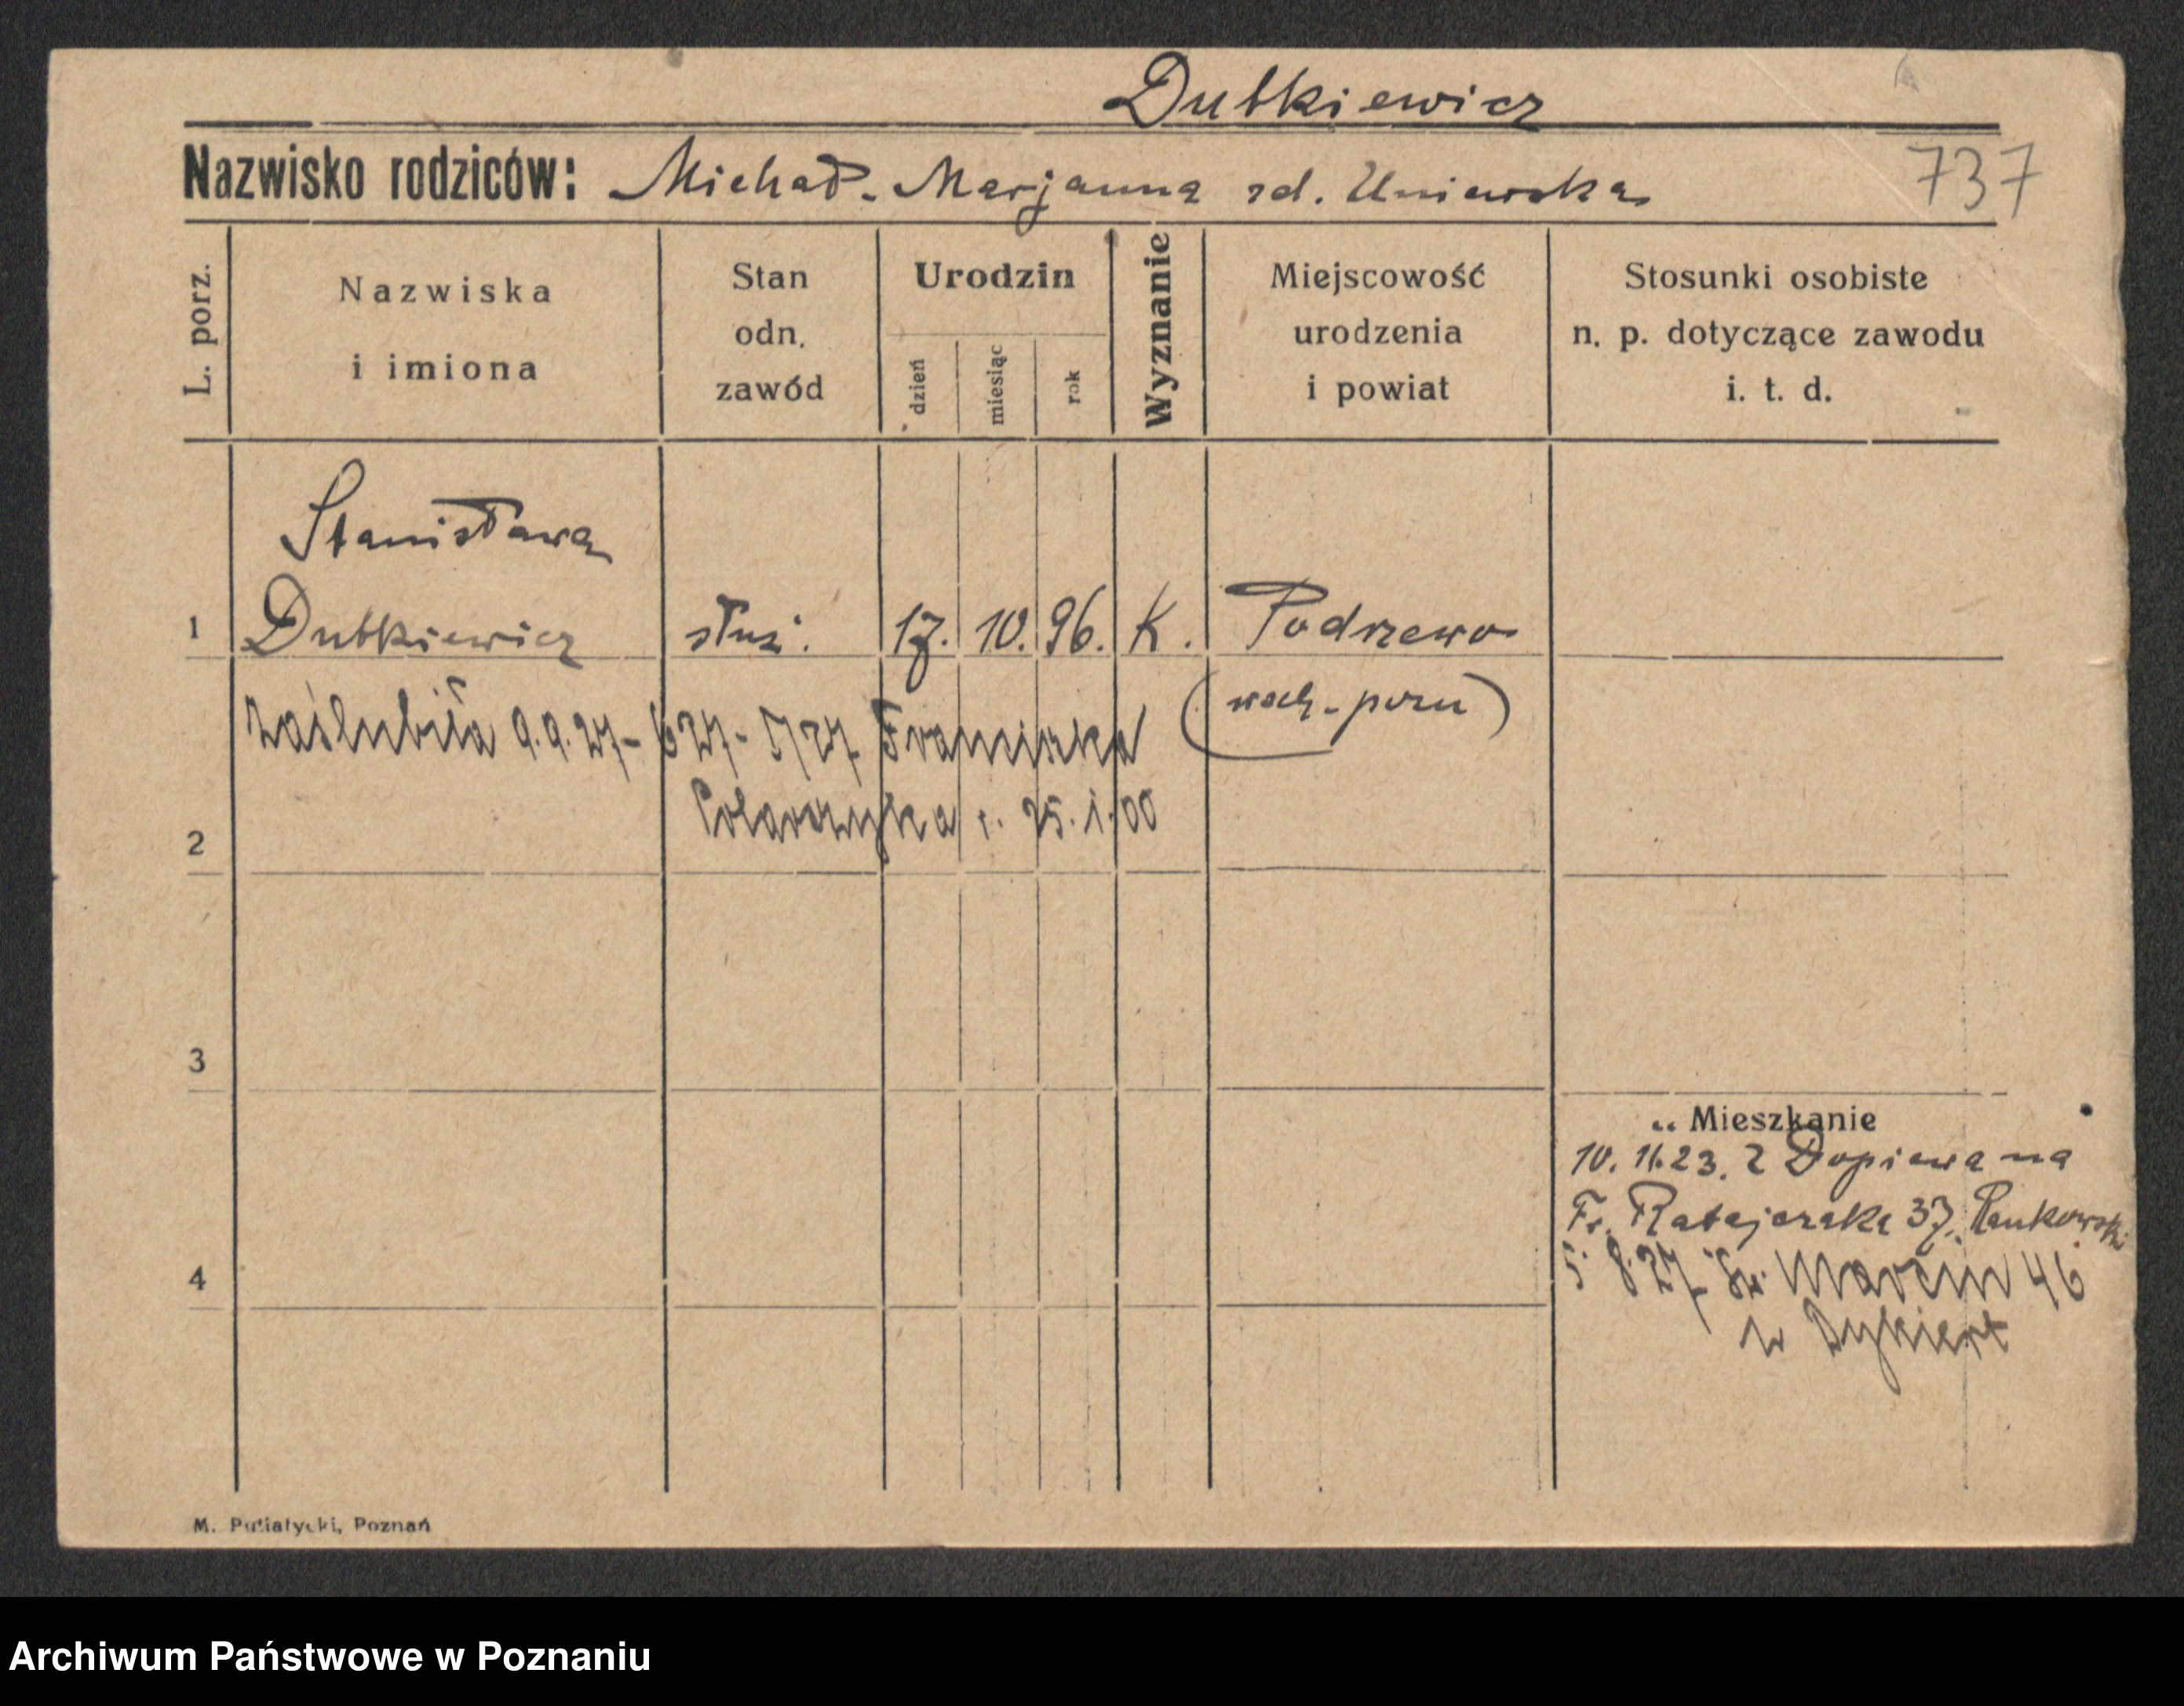 Dutkiewicz
Nazwisko rodziców: Michał. Marjanna rd. Uniewska 737
L. porz.
Nazwiska
i imiona
Stan
odn.
zawód
Urodzin
dzień
miesiąc
rok
Wyznanie
Miejscowość
urodzenia
i powiat
Stosunki osobiste
n. p. dotyczące zawodu
i. t. d.
Stanisława
1 Dutkiewicz służ. 17. 10. 96. K. Podrzewo
zaślubiła 9.9.27 - 627 - 5/27 Franciszka
25.1.00
2
3
Mieszkanie
10. 11.23. z Dopiewa na
Fr. Ratajczaka 37. Pankowski
5 8.27 Św. Marcin 46
4
w Dykiert
M. Putiatycki, Poznań
Archiwum Państwowe w Poznaniu